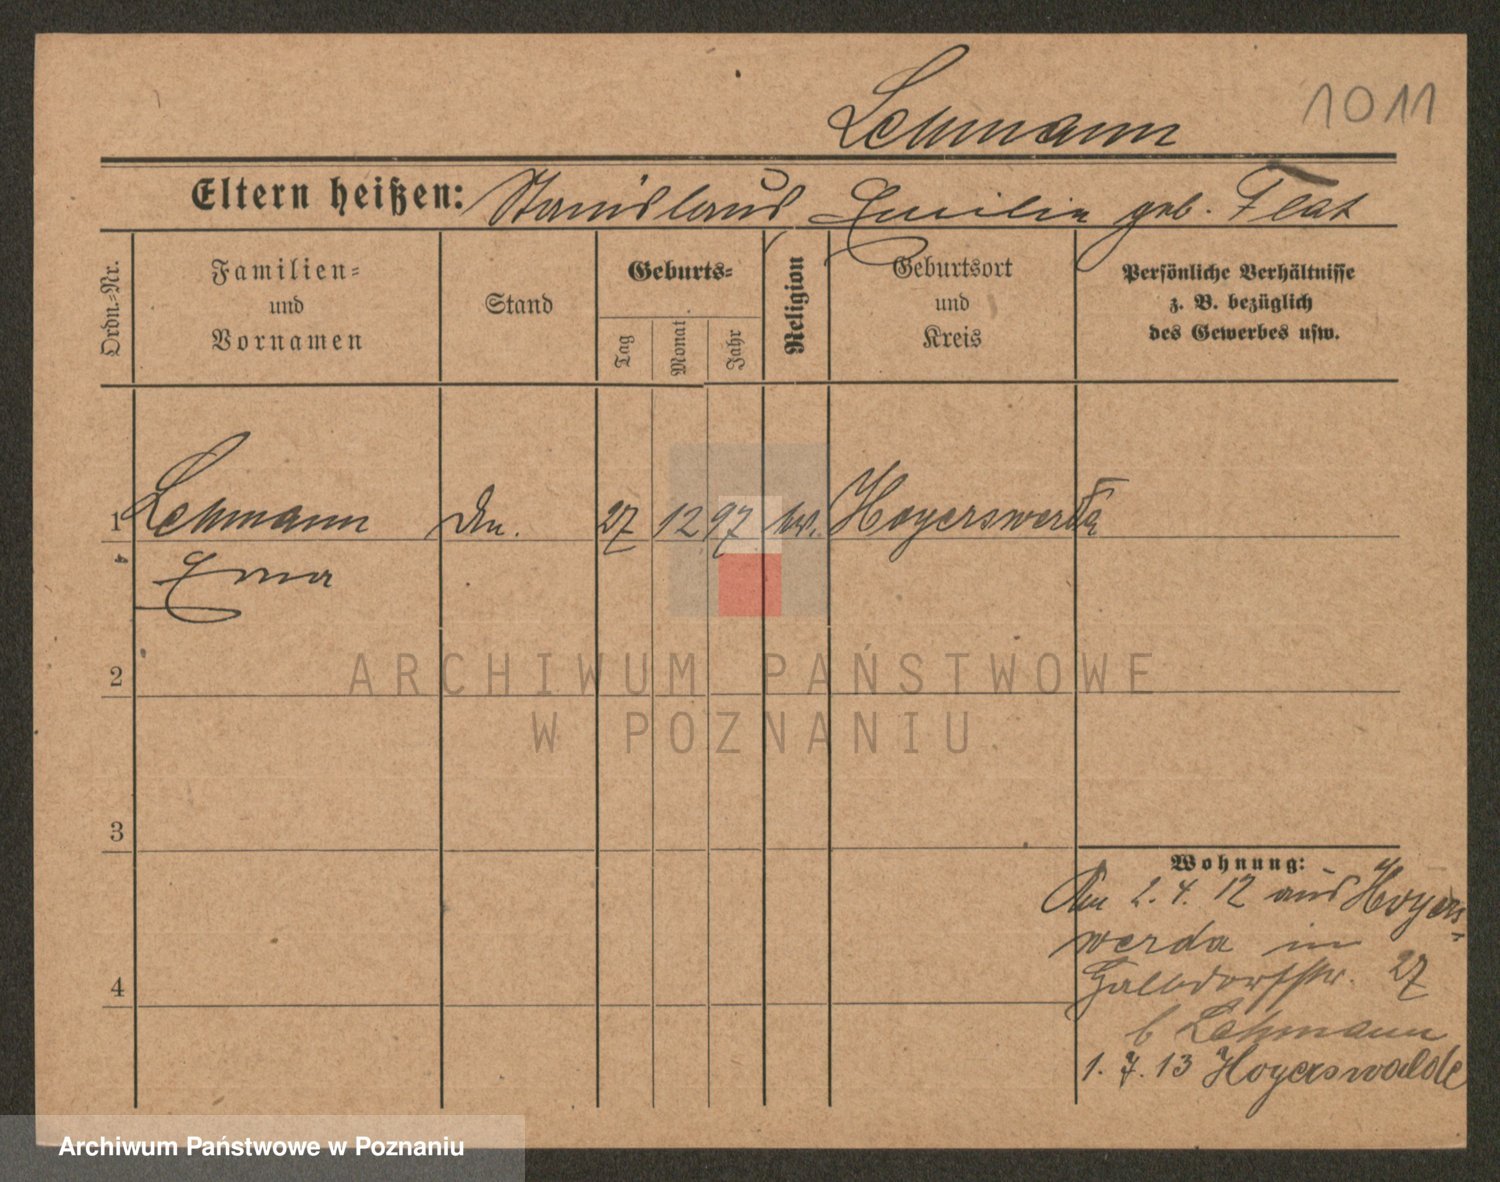 Lehmann
1011
Eltern heißen: Stanislaus Emilia geb. Flat
Ordn.-Nr.
Familien-
und
Vornamen
Stand
Geburts-
Tag
Monat
Jahr
Religion
Geburtsort
und
Kreis
Persönliche Verhältnisse
z. B. bezüglich
des Gewerbes usw.
1 Lehmann 27 12 97 Hoyerswerda
Erna
2
3
4
Wohnung:
2. 4. 12 aus Hoyers-
werda in
Halbdorfstr. 27
b Lehmann
1. 7. 13 Hoyerswalde
ARCHIWUM PAŃSTWOWE
W POZNANIU
Archiwum Państwowe w Poznaniu